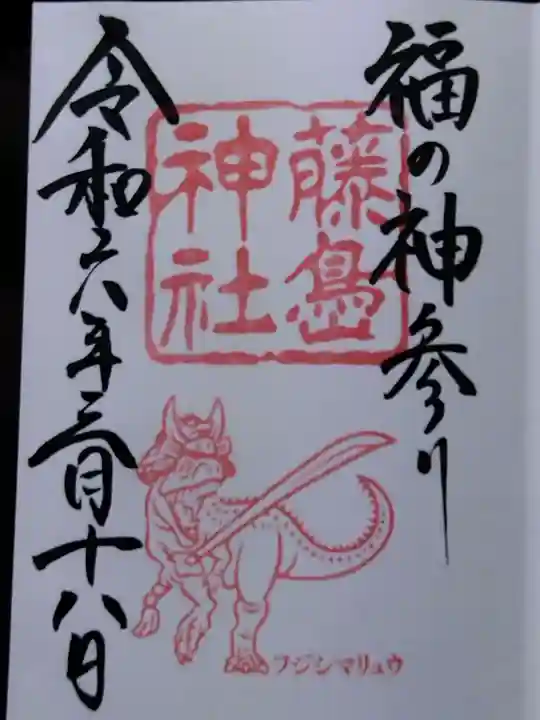 福の神参り
藤島
神社
令和六年三月十八日
フジシマリュウ